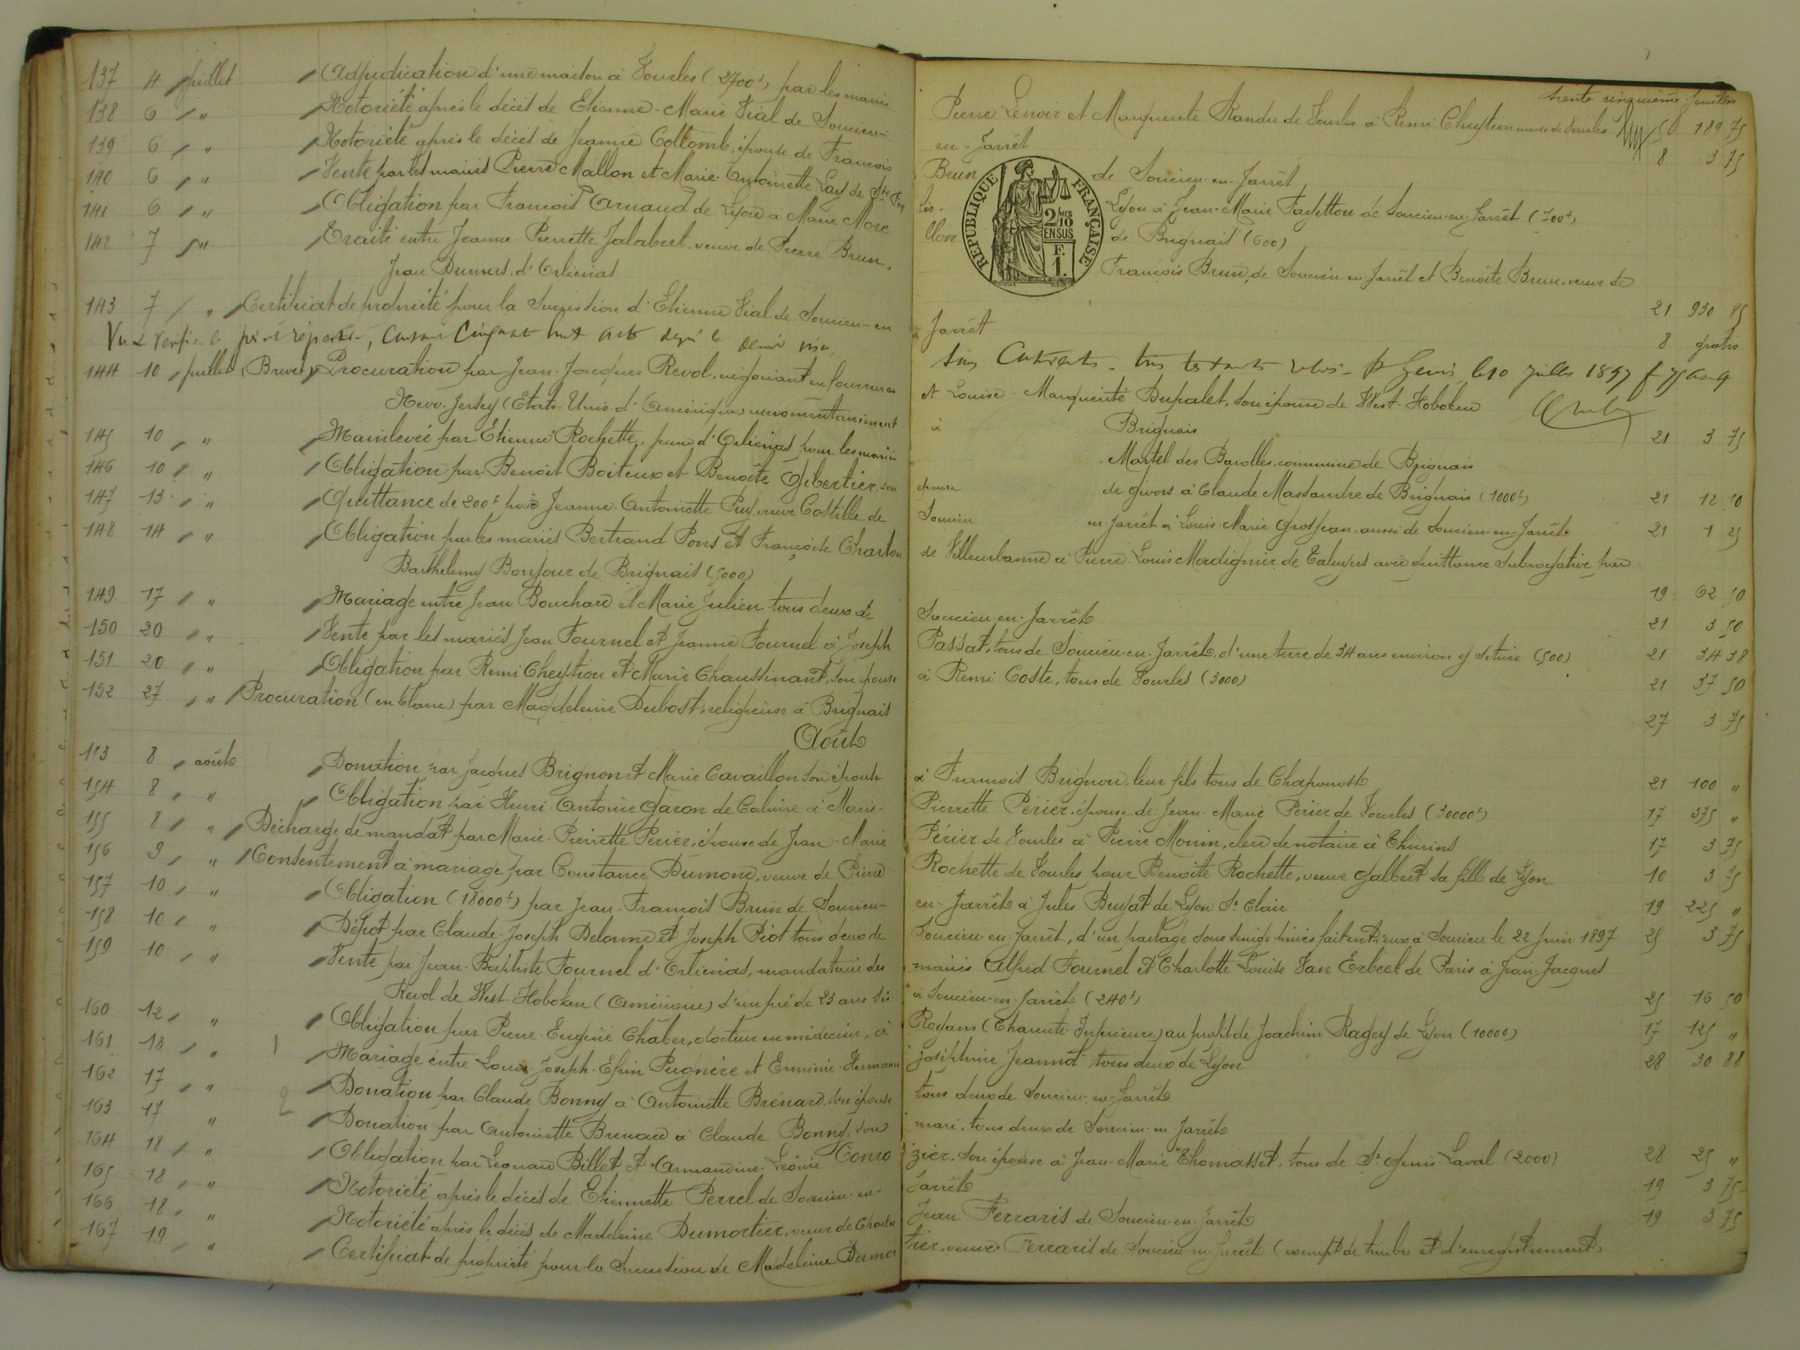 trente cinquième feuillet
137 4 juillet Adjudication d'une maison à Vourles (2700f) par les mariés Pierre Lenoir et Marguerite Randu de Vourles à Remi Cheystion aussi de Vourles 189 75
138 6 " Notoriété après le décès de Etienne-Marie Vial de Soucieu-en-Jarrêt 8 3 75
139 6 " Notoriété après le décès de Jeanne Collomb, épouse de François Brun de Soucieu-en-Jarrêt
140 6 " Vente par les mariés Pierre Mallon et Marie-Antoinette Lay de Ste Foy lès-Lyon à Jean-Marie Fayetton de Soucieu-en-Jarrêt (700f)
141 6 " Obligation par François Arnaud de Lyon à Marie More de Brignais (600)
142 7 " Traité entre Jeanne Pierrette Jalabert, veuve de Pierre Brun, François Brun, de Soucieu-en-Jarrêt et Benoîte Brun, veuve de
Jean Dumas, d'Orliénas 21 930 85
143 7 " Certificat de propriété pour la succession d'Etienne Vial de Soucieu-en-Jarrêt 8 gratis
Vu & vérifié le présent répertoire, cinquante huit acte depuis le dernier visa, St Genis, le 10 juillet 1897
144 10 juillet (Brevet) Procuration par Jean-Jacques Revol, négociant en fourrures et Louise-Marguerite Dupalet, son épouse de West-Hoboken
New-Jersey (Etats-Unis d'Amérique) momentanément à Brignais 21 3 75
145 10 " Mainlevée par Etienne Rochette, d'Orliénas, pour les mariés Martel des Barolles, commune de Brignais
146 10 " Obligation par Benoît Boiteux et Benoîte Gibertier, son épouse de Givors à Claude Massandre de Brignais (1000f) 21 12 50
147 13 " Quittance de 200f par Jeanne-Antoinette Puy, veuve Costille de Soucieu en Jarrêt à Louis-Marie Grosjean, aussi de Soucieu-en-Jarrêt 21 1 25
148 14 " Obligation par les mariés Bertrand Pons et Françoise Charton de Villeurbanne à Pierre-Louis Madignier, de Taluyers avec quittance subrogative par
Barthélemy Bonjour de Brignais (5000) 19 62 50
149 17 " Mariage entre Jean Bouchard et Marie Julien tous deux de Soucieu-en-Jarrêt 21 3 50
150 20 " Vente par les mariés Jean Fournel et Jeanne Fournel à Joseph Passat, tous de Soucieu-en-Jarrêt, d'une terre de 34 ares environ y située (500) 21 34 38
151 20 " Obligation par Remi Cheystion et Marie Chaussinant, son épouse à Remi Coste, tous de Vourles (3000) 21 37 50
152 27 " Procuration (en blanc) par Magdeleine Dubost, religieuse à Brignais 27 3 75
Août
153 8 août Donation par Jacques Brignon et Marie Cavaillon son épouse à François Brignon, leur fils tous de Chaponost 21 100 "
154 8 " Obligation par Henri-Antoine Garon de Caluire à Marie-Pierrette Périer, épouse de Jean-Marie Périer de Vourles (30000f) 17 375 "
155 8 " Décharge de mandat par Marie-Pierrette Périer, épouse de Jean-Marie Périer de Vourles à Pierre Mounin, clerc de notaire à Thurins 17 3 75
156 9 " Consentement à mariage par Constance Dumond, veuve de Pierre Rochette de Vourles pour Benoîte Rochette, veuve Galbert sa fille de Lyon 10 3 75
157 10 " Obligation (18000f) par Jean-François Brun de Soucieu-en-Jarrêt à Jules Brufat de Lyon St Clair 19 225 "
158 10 " Dépôt par Claude-Joseph Delorme et Joseph Piot tous deux de Soucieu-en-Jarrêt, d'un partage sous seings privés fait entr'eux à Soucieu le 22 juin 1897 25 3 75
159 10 " Vente par Jean-Baptiste Fournel d'Orliénas, mandataire des mariés Alfred Fournel et Charlotte-Louise Van Erbeek de Paris à Jean-Jacques
Revol de West-Hoboken (Amérique) d'un pré de 23 ares sis à Soucieu-en-Jarrêt (240f) 25 16 50
160 12 " Obligation par Pierre-Eugène Chaber, docteur en médecine, à Royans (Charente-Inférieure) au profit de Joachim Ragey de Lyon (10000) 17 125 "
161 13 " 1 Mariage entre Louis-Joseph-Ephin Pugnère et Erminie-Hermann Joséphine Jeannot tous deux de Lyon 28 30 88
162 17 " Donation par Claude Bonny à Antoinette Brenard, son épouse tous deux de Soucieu-en-Jarrêt
163 17 " 2 Donation par Antoinette Brenard à Claude Bonny, son mari, tous deux de Soucieu-en-Jarrêt
164 18 " Obligation par Léonard Billet et Armandine-Léonie Honrozier, son épouse à Jean-Marie Thomasset, tous de St Genis-Laval (2000) 28 25 "
165 18 " Notoriété après le décès de Etiennette Perrel de Soucieu-en-Jarrêt 19 3 75
166 18 " Notoriété après le décès de Madeleine Dumortier, veuve de Charles Jean Ferraris de Soucieu-en-Jarrêt 19 3 75
167 19 " Certificat de propriété pour la succession de Madeleine Dumortier, veuve Ferraris de Soucieu-en-Jarrêt (exempt de timbre et d'enregistrement)
REPUBLIQUE FRANÇAISE
2/10 EN SUS
F. 1.